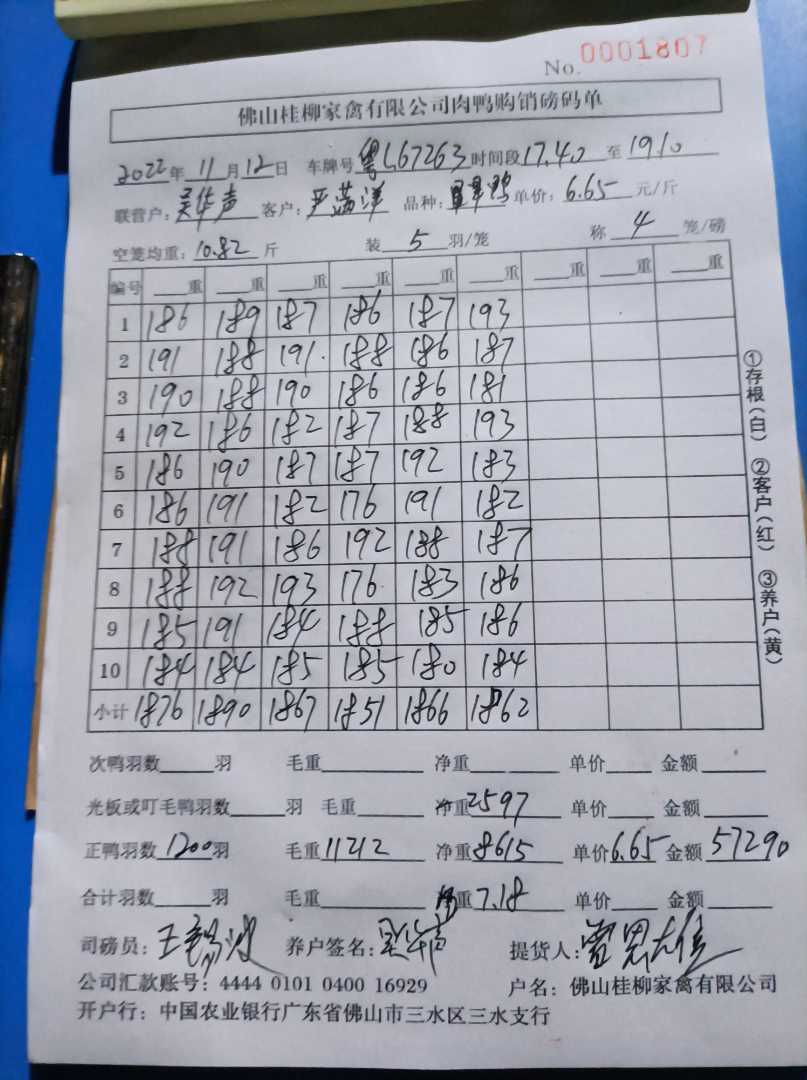 No. 0001807
佛山桂柳家禽有限公司肉鸭购销磅码单
2022年11月12日 车牌号粤L67263时间段17.40至1910
联营户:吴华声 客户:严满洋 品种: 单价:6.65元/斤
空笼均重:10.82斤 装5羽/笼 称4笼/磅
编号 重 重 重 重 重 重 重 重 重
1 186 189 187 186 187 193
2 191 188 191. 188 186 187
3 190 188 190 186 186 181
4 192 186 182 187 188 193
5 186 190 187 187 192 183
6 186 191 182 176 191 182
7 188 191 186 192 188 187
8 188 192 193 176. 183 186
9 185 191 184 188 185 186
10 184 184 185 185 180 184
小计 1876 1890 1867 1851 1866 1862
①存根(白) ②客户(红) ③养户(黄)
次鸭羽数 羽 毛重 净重 单价 金额
光板或叮毛鸭羽数 羽 毛重 净重2597 单价 金额
正鸭羽数1200羽 毛重11212 净重8615 单价6.65金额57290
合计羽数 羽 毛重 重7.18 单价 金额
司磅员: 养户签名: 提货人:
公司汇款账号:4444 0101 0400 16929 户名:佛山桂柳家禽有限公司
开户行:中国农业银行广东省佛山市三水区三水支行